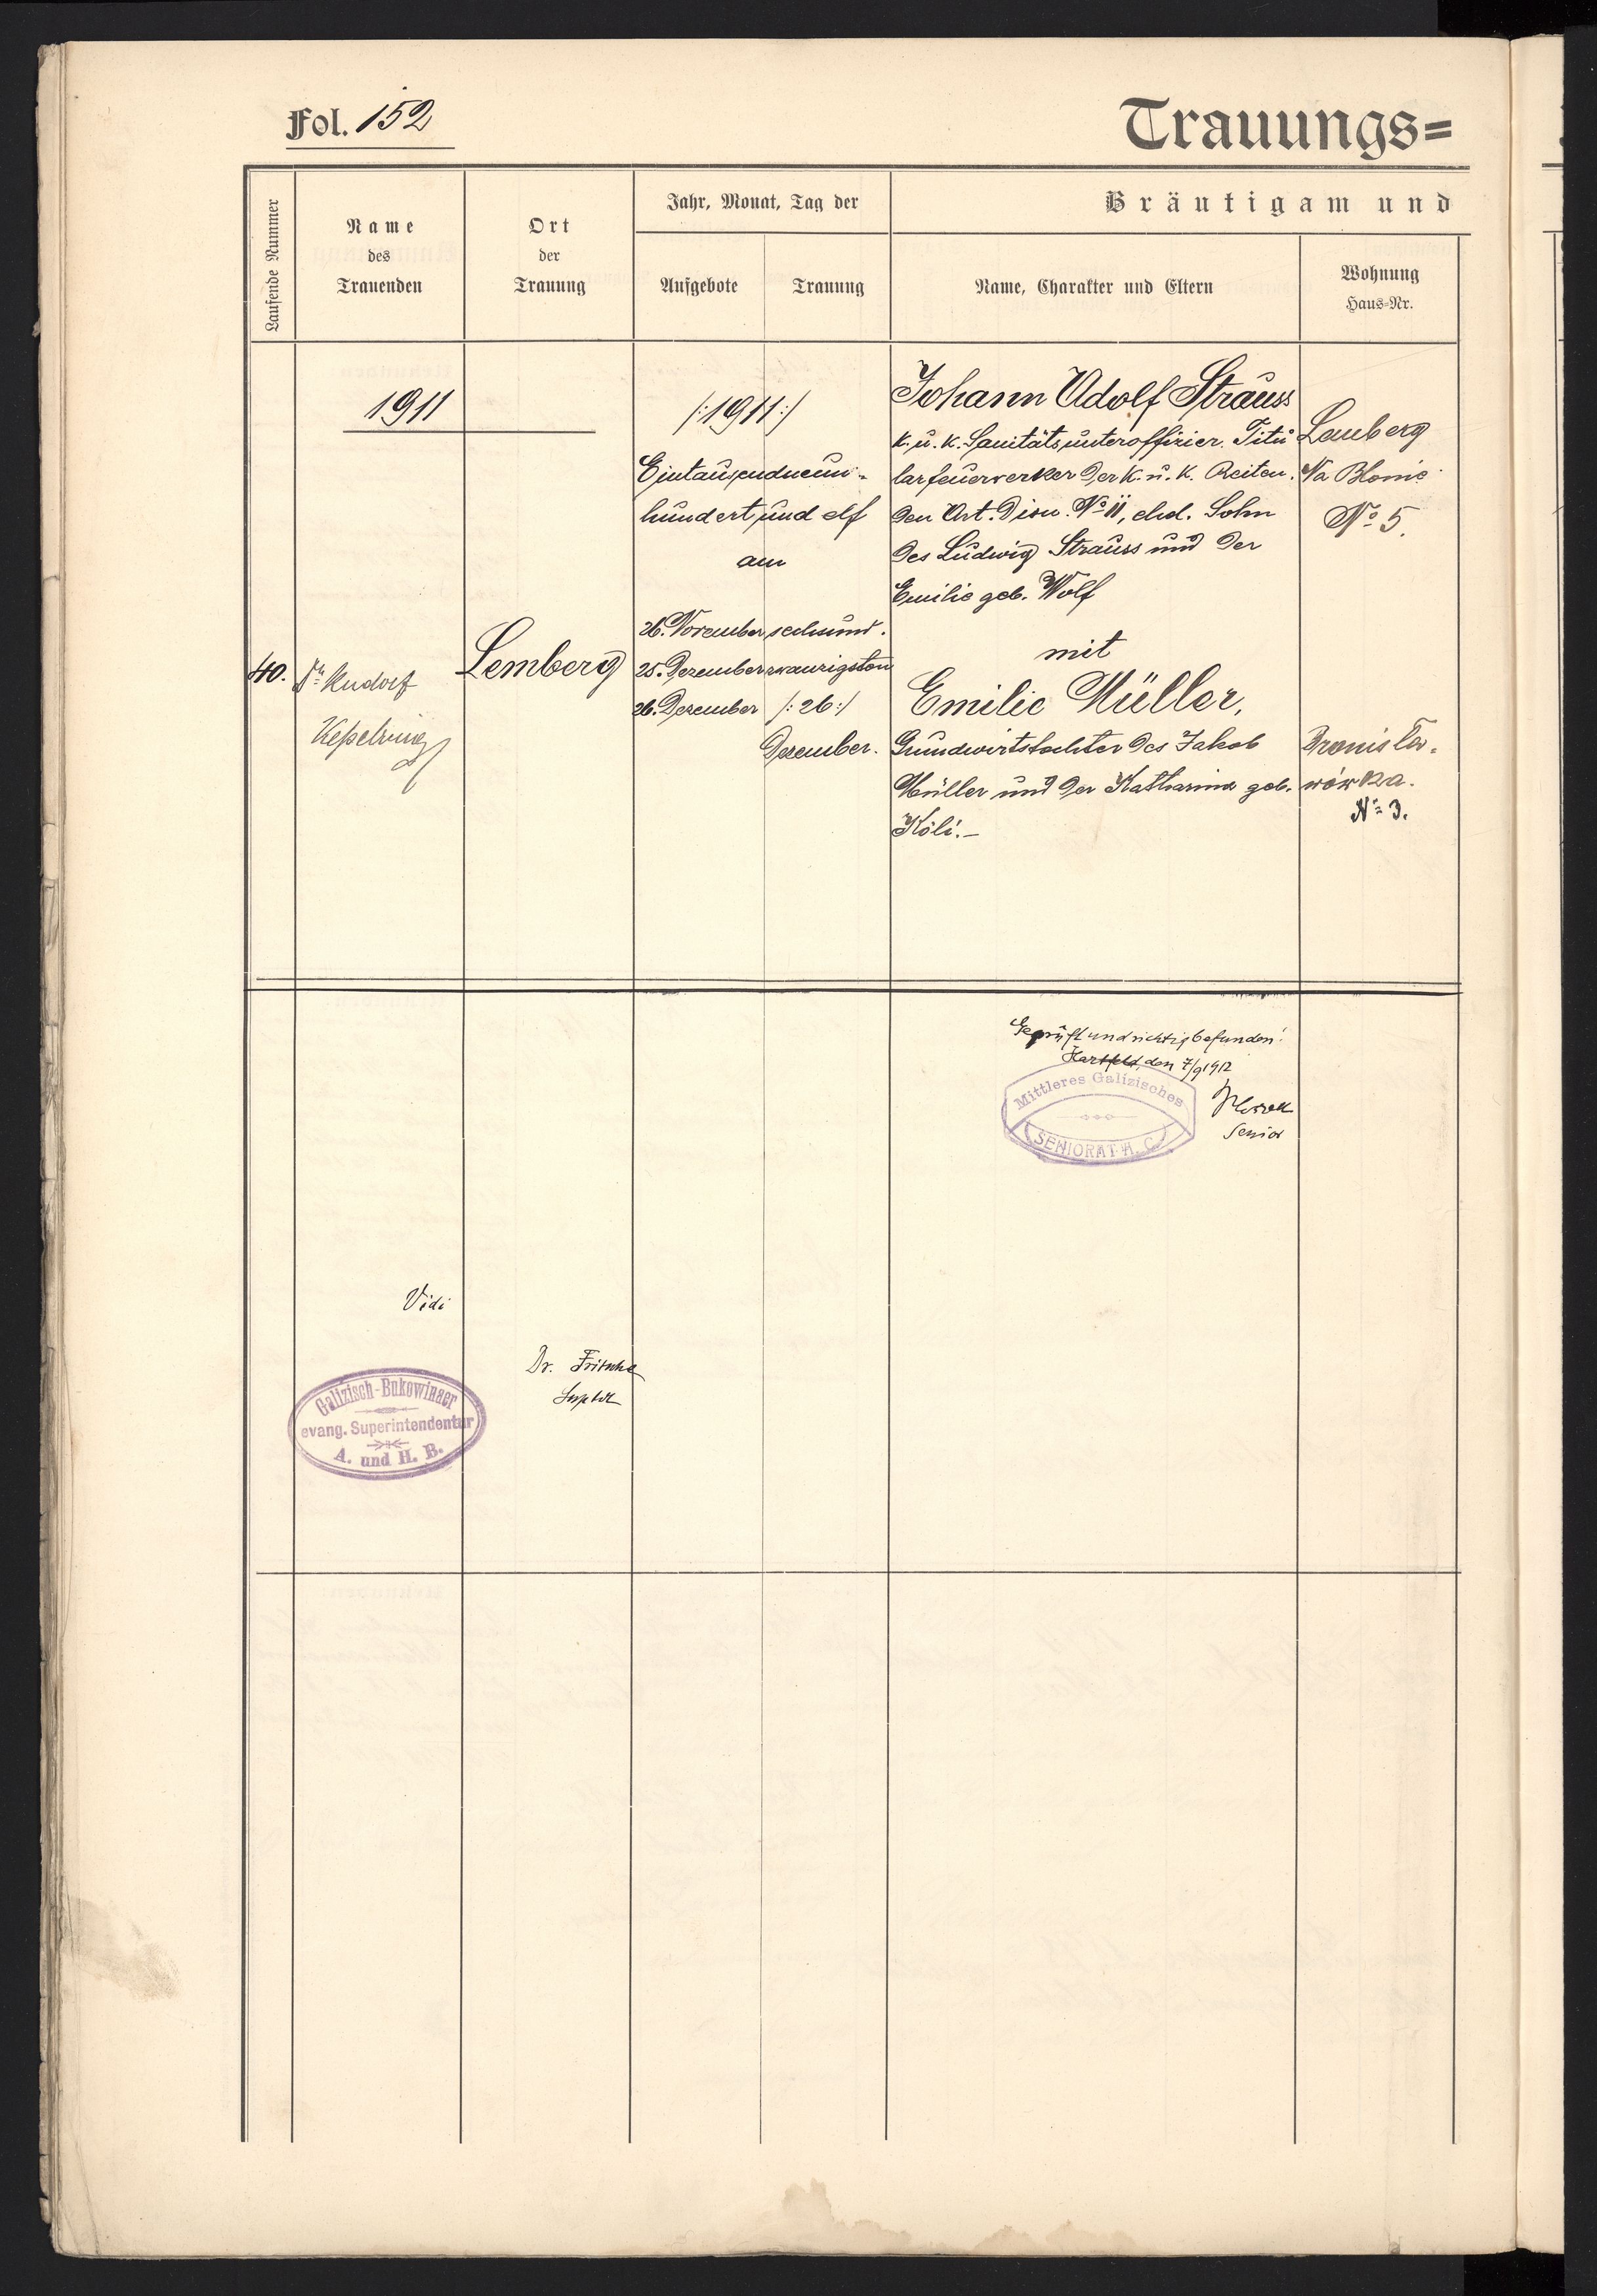 Fol. 152
Trauungs=
Laufende Nummer
Name
des
Trauenden
Ort
der
Trauung
Jahr, Monat, Tag der
Aufgebote
Trauung
Bräutigam und
Name, Charakter und Eltern
Wohnung
Haus-Nr.
1911
/:1911:/
Eintausendneun-
hundert und elf
am
26. November
25. Dezember
26. Dezember
sechsund.
zwanzigsten
/:26:/
Dezember.
40.
Dr. Rudolf
Keßelring
Lemberg
Johann Adolf Strauss
k. u. k. Sanitätsunteroffizier. Titu
larfeuerwerker der k. u. k. Reiten.
den Art. Divn. No 11, ehel. Sohn
des Ludwig Strauss und der
Emilie geb. Wolf
mit
Emilie Müller,
Grundwirtstochter des Jakob
Müller und der Katharina geb.
Köli.–
Lemberg
Na Blonie
No 5.
Bronisła-
wówka.
No 3.
Geprüft und richtig befunden!
Hartfeld, den 7/9 1912
Senior
Mittleres Galizisches
SENIORAT A. C.
Vidi
Dr. Fritsche
Supdt
Galizisch-Bukowinaer
evang. Superintendentur
A. und H. B.